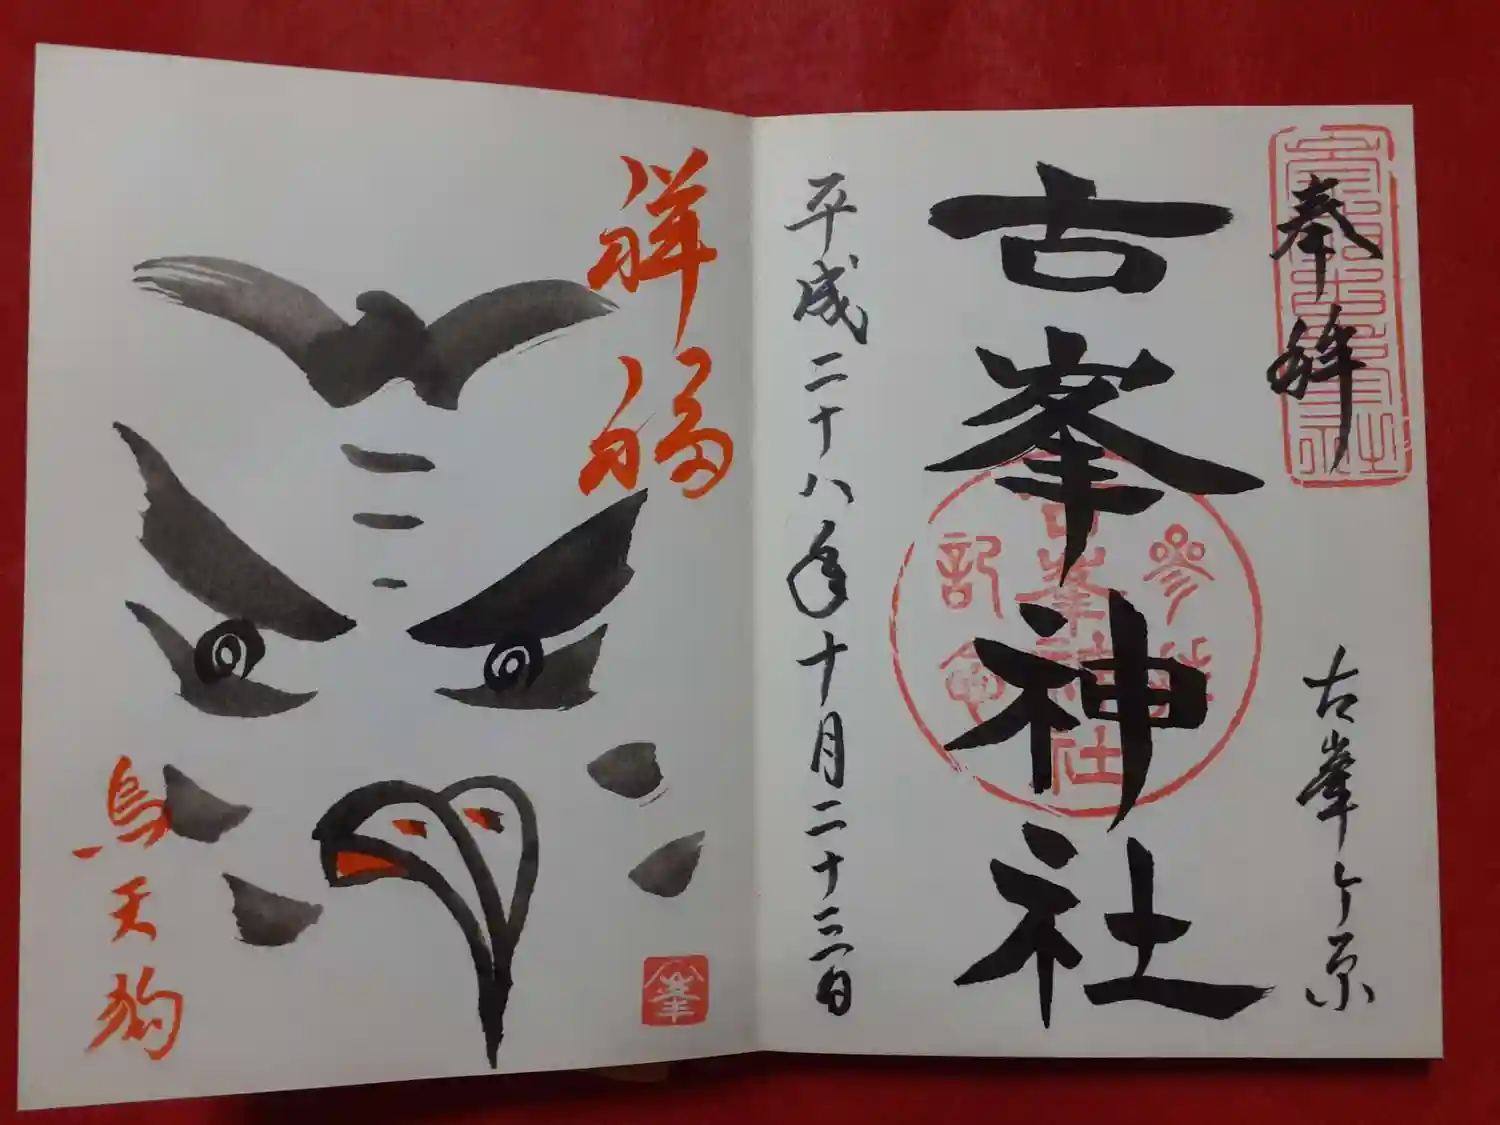 奉拝
古峯ヶ原
古峯神社
參拝
古峯神社
記念
平成二十八年十月二十三日
祥福
烏天狗
峯